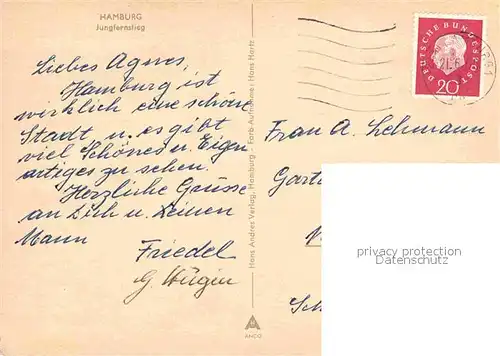 HAMBURG
Jungfernstieg
Liebes Agnes,
Hamburg ist
wirklich eine schöne
Stadt u. es gibt
viel Schönes u. Eigen
artiges zu sehen.
Herzliche Grüsse
an Dich u. Deinen
Mann
Friedel
Hans Andres Verlag, Hamburg - Farb Aufnahme: Hans Hartz
ANCO
DEUTSCHE BUNDESPOST
20
Frau A. Lehmann
privacy protection
Datenschutz